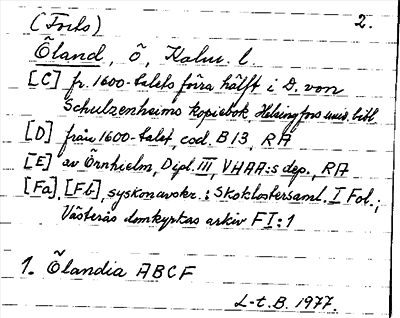 (Forts) 2.
Õland, õ, Kalm. l.
[C] fr. 1600-talets förra hälft i D. von
Schulzenheims kopiebok, Helsingfors univ. bibl
[D] från 1600-talet, cod. B 13, RA
[E] av Örnhielm, Dipl. III, VHAA:s dep., RA
[Fa], [Fb], syskonavskr.: Skoklostersaml. I Fol.;
Västerås domkyrkas arkiv F I:1
1. Õlandia ABCF
L-t. B. 1977.